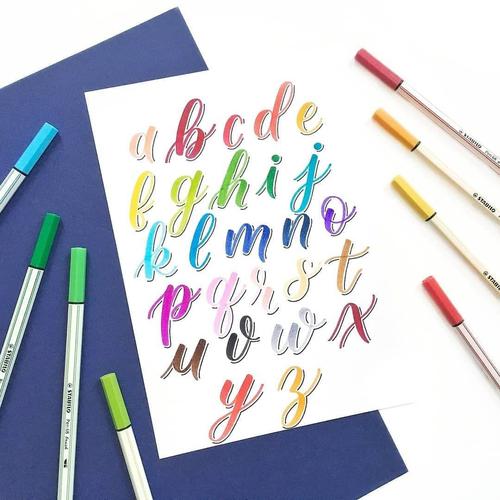 a b c d e
f g h i j
k l m n o
p q r s t
u v w x
y z
STABILO
STABILO Pen 68 brush
STABILO
STABILO
STABILO
STABILO
STABILO